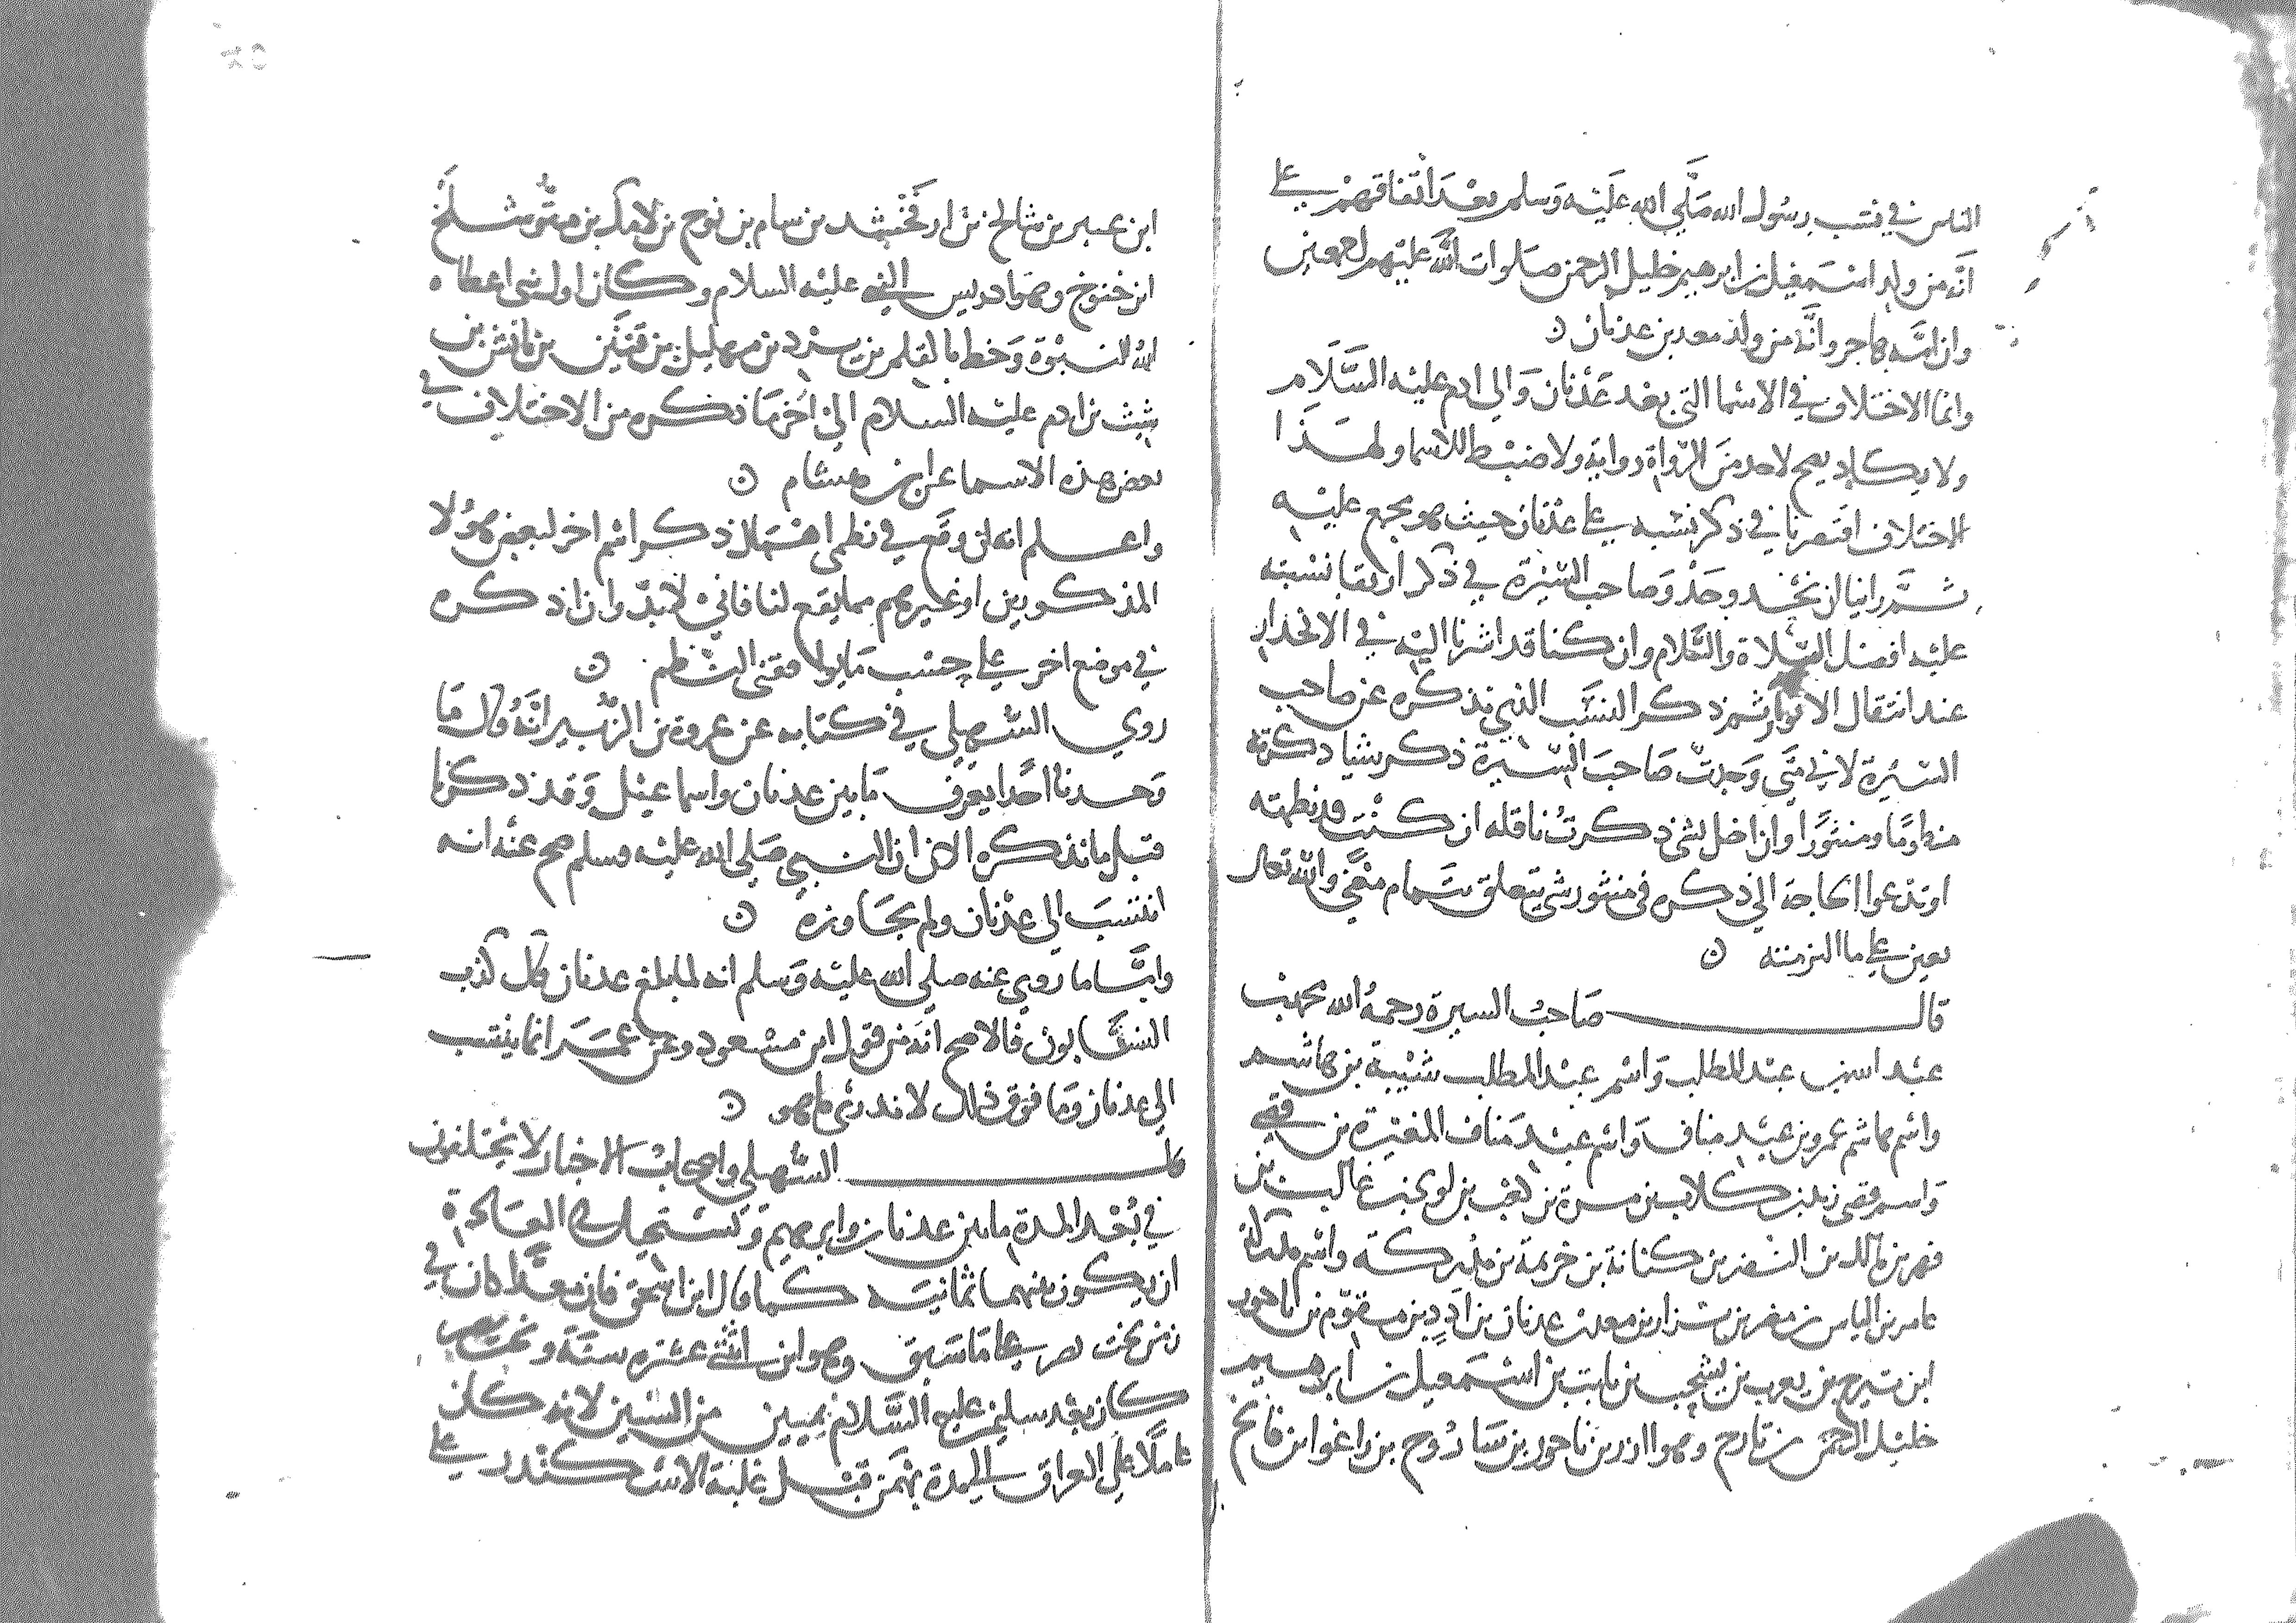 الناس في نسب رسول الله صَلَّي الله عَلَيْه وَسلم بعْدَ اتفاقهمْ علي
أنَّه من ولد اسْمَعيل بن ابرهيم خليل الرحمن صَلوات اللَّه عليْهم اجمعين
وان امَّه هاجر وانَّه من ولد معد بن عدنان ن
وانما الاختلاف في الاسْما التي بعْد عَدْنان وَالي ادم عليْه السَّلَام
ولا يكاد يصح لاحد منَ الرّواة رواية ولا ضبْط للاسما ولهَذَا
الاختلاف اقتصرنا في ذكر نسَبه علي عدْنان حيث هو مجمع عليْه
ثمَّ راينا ان نحْذو حَذْو صَاحب السّيْرة في ذكر ارتقا نسْبته
عليْه افضل الصّلاة والسَّلام وان كنا قد اشرنا اليْه في الانحدار
عند انتقال الانوار ثم ذكر النسَب الذي نذكره عن صاحب
السّيْرة لاني متي وَجدتّ صَاحبَ السّيْرة ذكر شيْا ذكرته
منظومًا ومنثورًا وان اخل بشي ذكرتُ ناقله ان كنْت قد نظمته
او تدعوا الحاجة الي ذكره في منثور شي يتعلق بتَمام معْني والله تعالي
يعين علي ما التزمته ن
قال صَاحبُ السيرة رحمهُ الله محمد بن
عبْد الله بن عبْد المطلب وَاسْم عبْد المطلب شيْبة بن هاشم
واسْم هاشم عمرو بن عبْد مناف وَاسْم عبْد مَناف المغيْرة بن قصي
وَاسم قصي زيد بن كلاب بن مرة بن كعْب بن لوي بن غالب بن
فهر بن مالك بن النضر بن كنانة بن خزيمة بن مدْركة واسْم مدركة
عامر بن الياس بن مضر بن نزار بن معد بن عدنان بن ادَد بن مقوّم بن ناحور
ابن تيرح بن يعرب بن يشْجب بن نابت بن اسْمَعيل بن ابرهيم
خليل الرحمن بن تارح وهو ازر بن ناحور بن سَارُوح بن راغو ابن فالخ
ابن عيبر بن شالخ بن ارفَخْشد بن سام بن نوح بن لامك بن متُّوشلَخ
ابن خنوخ وهوَ ادريس النبي عليْه السلام وكان اول نبي اعطاه
اللهُ النبُوّة وَخط بالقلم بن يرْد بن مهليل بن قيْنَن بن يانش بن
شيْث بن ادم عليْه السلام الي اخر مَا نذكره من الاختلاف في
بعض هذه الاسما عن ابن هشام ن
واعلم انه ان وقع في نظمي اهْمال ذكر اسْم اخر لبعض هؤُلا
المذكورين او غيرهم مما يقع لنا فاني لا بدّ وان اذكره
في موضع اخر علي حسْب مَا يوافقني النظم ن
روي السُّهيلي في كتابه عن عروة بن الزُّبير انَّهُ قال مَا
وَجدنا احَدا يعرف مَا بين عدنان واسماعيْل وَقد ذكرنا
قبل ما نذكره الان ان النبيَّ صَلي الله عليْه وسلم صح عنْه انه
انتسَبَ الي عدْنان ولم يجَاوزه ن
وامَّا ما روي عنه صلي الله عليْه وَسلم انه لما بلغ عدنان قال كذب
النسَّابون فالاصح انَّه من قول ابن مسْعود وعن عُمَرَ انما ينتسب
الي عدنان وَما فوق ذلك لا ندْري ما هو ن
قال السُّهيلي واصحابُ الاخبار لا يختلفون
في بُعْد المدة ما بين عدنان وابرهيم وَيَسْتحيل في العَادة
ان يكون بيْنهما ثمانية كما قال ابن اسْحق فان معدًّا كان في
زمن بخت نصر علي مَا سَبق وهو ابن اثْنتي عشرة سنَة وبخت نصر
كان بعْد سليمن عليْه السَّلام بميين من السّنين لانه كان
عاملًا علي العراق لهمَن قبْل غلبة الاسْكندر علي